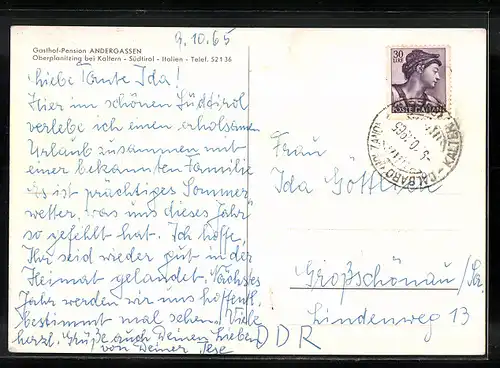 Gasthof-Pension ANDERGASSEN
Oberplanitzing bei Kaltern - Südtirol - Italien - Telef. 52136
9.10.65
30
LIRE
POSTE ITALIANE
KALTERN - CALDARO
Liebe Tante Ida!
Hier im schönen Südtirol
verlebe ich einen erholsamen
Urlaub zusammen mit
einer bekannten Familie
Es ist prächtiges Sommer
wetter, was uns dieses Jahr
so gefehlt hat. Ich hoffe,
Ihr seid wieder gut in der
Heimat gelandet. Nächstes
Jahr werden wir uns hoffentl.
bestimmt mal sehen. Viele
herzl. Grüße auch Deinen Lieben
von Deiner
Frau
Ida
Großschönau/Sa.
Lindenweg 13
DDR